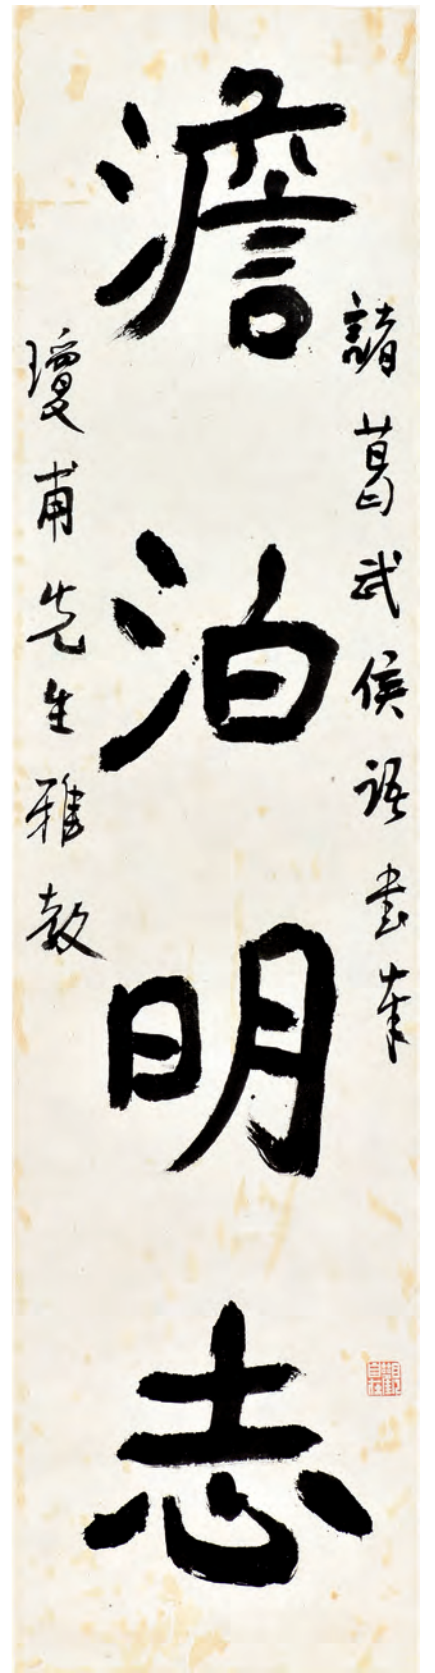 諸葛武侯語書奉
澹泊明志
瓊甫先生雅教